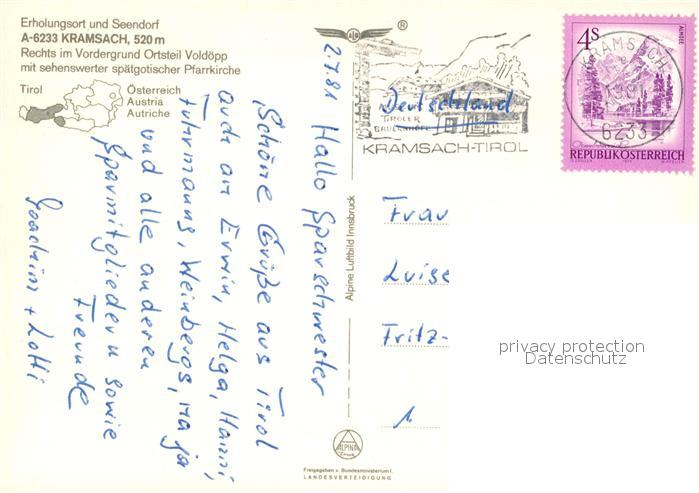 Erholungsort und Seendorf
A-6233 KRAMSACH, 520 m
Rechts im Vordergrund Ortsteil Voldöpp
mit sehenswerter spätgotischer Pfarrkirche
Tirol
Österreich
Austria
Autriche
2.7.81
Hallo Sparschwester
Schöne Grüße aus Tirol
auch an Erwin, Helga, Hanni,
Fuhrmanns, Weinbergs,
und alle anderen
Sparmitglieder sowie
Freunde
Joachim + Lotti
Alpine Luftbild Innsbruck
ALPINE
Freigegeben v. Bundesministerium f.
LANDESVERTEIDIGUNG
®
TIROLER
BAUERNHÖFE
KRAMSACH-TIROL
Deutschland
4S
ALMSEE
REPUBLIK ÖSTERREICH
KRAMSACH
6233
Frau
Luise
Fritz-
1
privacy protection
Datenschutz